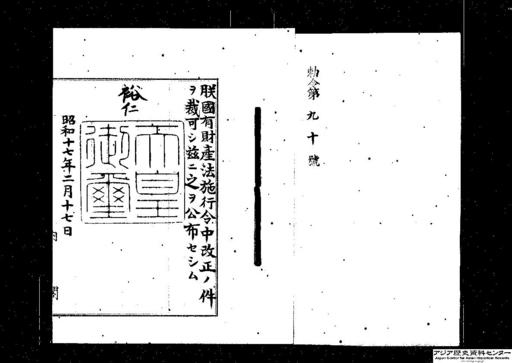 勅令第九十號
朕國有財產法施行令中改正ノ件
ヲ裁可シ茲ニ之ヲ公布セシム
裕仁
天皇
御璽
昭和十七年二月十七日
内閣
アジア歴史資料センター
Japan Center for Asian Historical Records